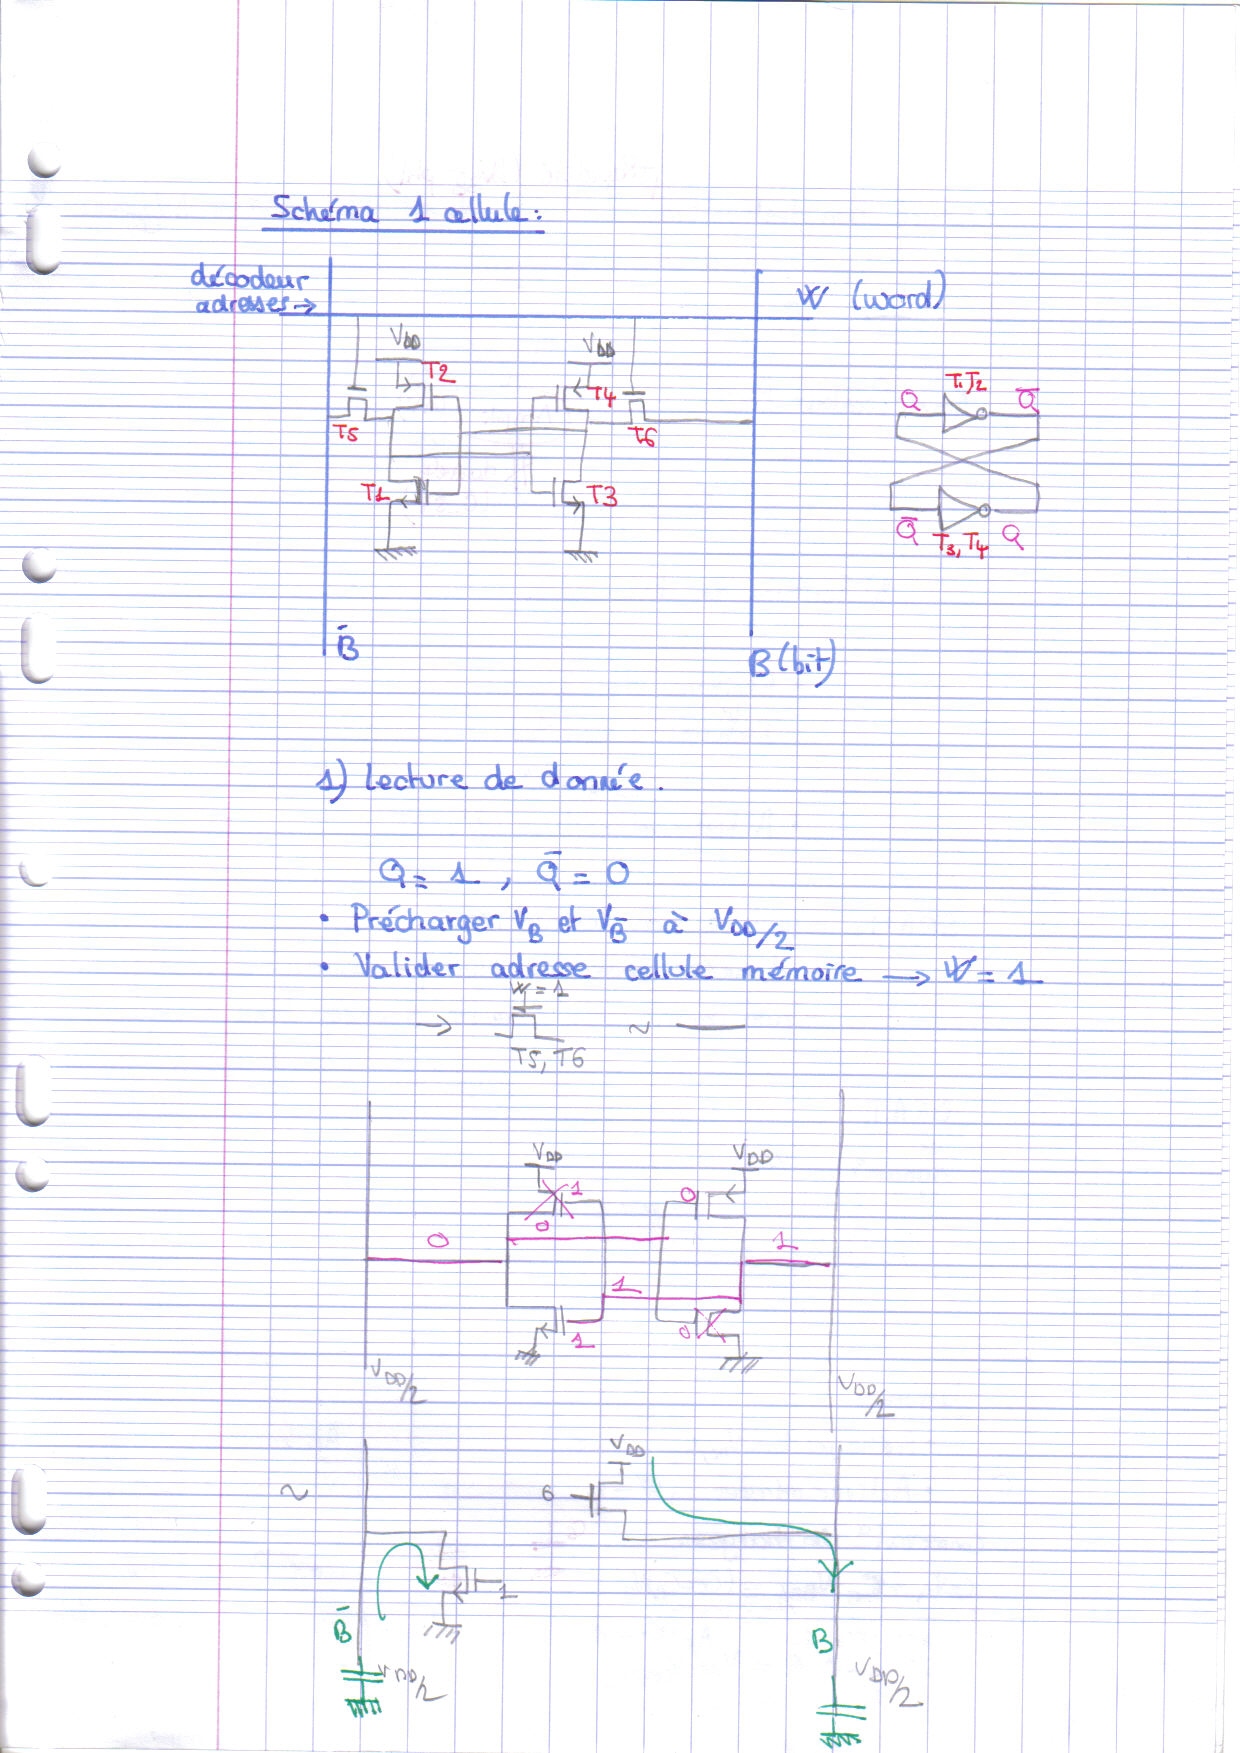 Schéma 1 cellule:
décodeur
adresses →
W (word)
VDD
VDD
T2
T4
T5
T6
T1
T3
T1,T2
Q
Q̄
Q̄
T3, T4
Q
B̄
B (bit)
1) Lecture de donnée.
Q = 1 , Q̄ = 0
• Précharger VB et VB̄ à VDD/2
• Valider adresse cellule mémoire → W = 1
W = 1
→ ~
T5, T6
VDD
VDD
1
0
0
0
1
1
1
0
VDD/2
VDD/2
VDD
~
1
B̄
B
VDD/2
VDD/2